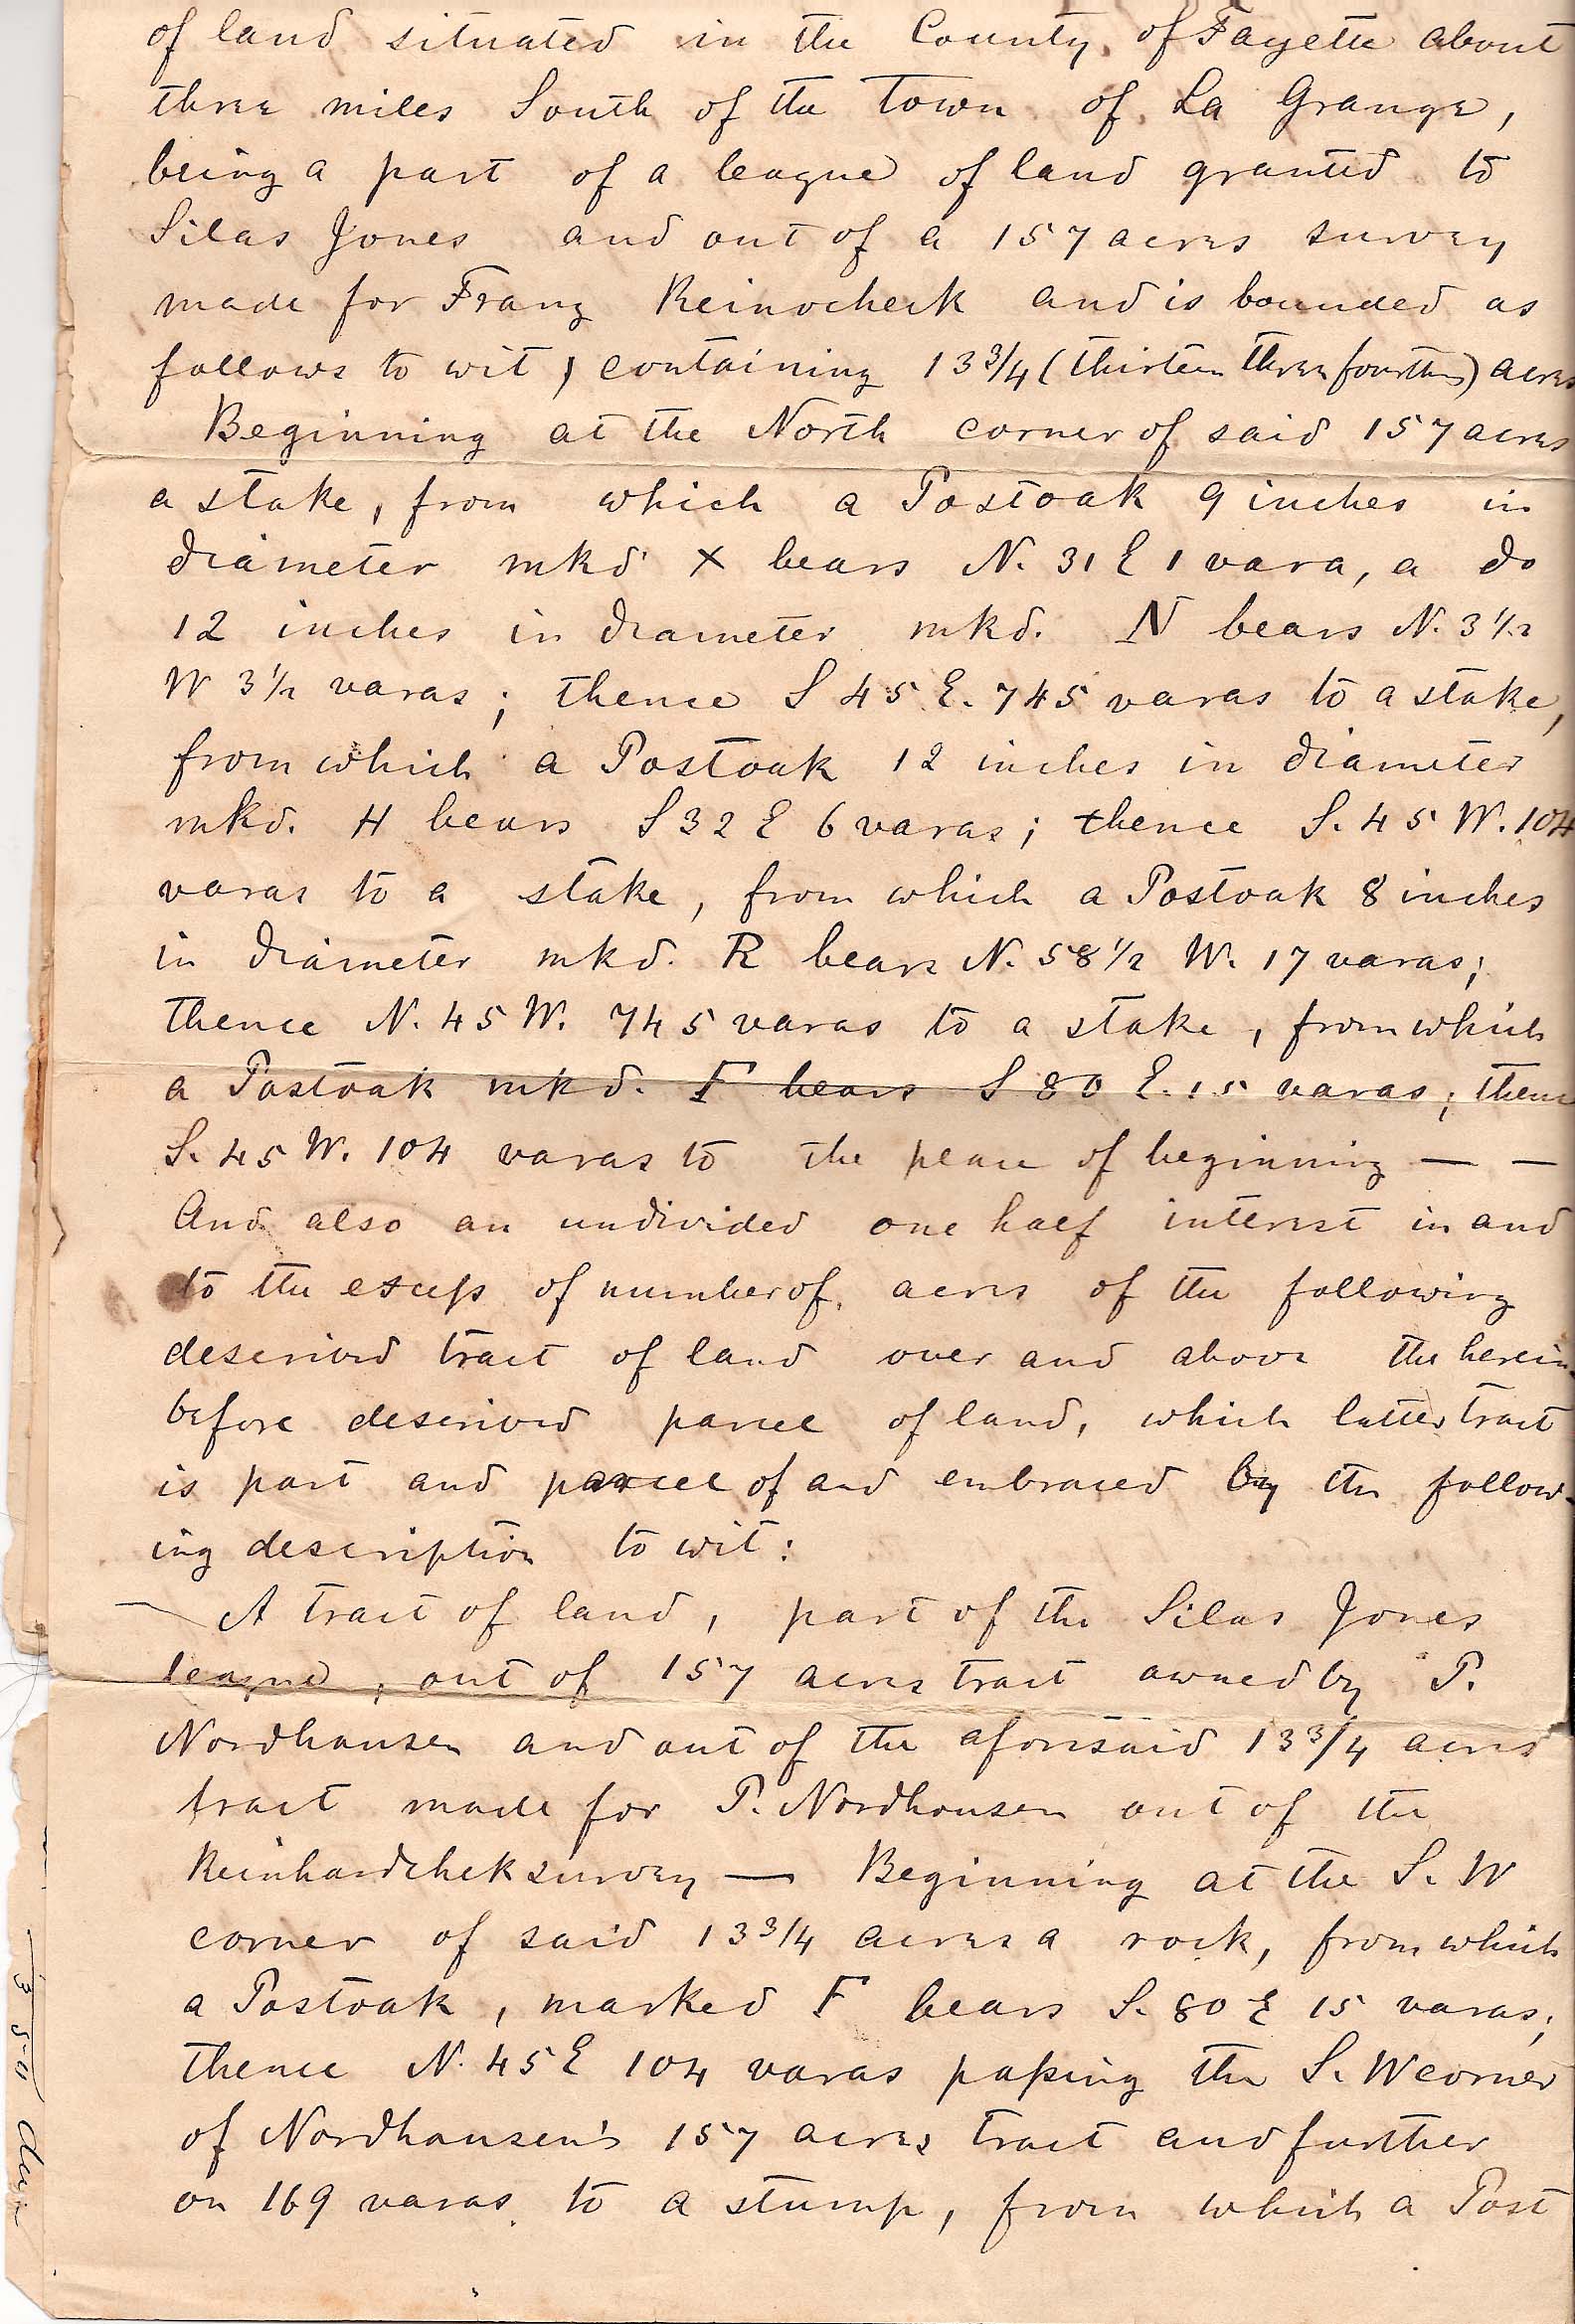 of land situated in the County of Fayette about
three miles South of the Town of La Grange,
being a part of a league of land granted to
Silas Jones and out of a 157 acres survey
made for Franz Reinocheck and is bounded as
follows to wit, containing 13 3/4 (thirteen three fourths) acres
Beginning at the North corner of said 157 acres
a stake, from which a Postoak 9 inches in
diameter mkd X bears N. 31 E 1 vara, a do
12 inches in diameter mkd. N bears N. 3 1/2
W 3 1/2 varas; thence S 45 E. 745 varas to a stake,
from which a Postoak 12 inches in diameter
mkd. H bears S 32 E 6 varas; thence S. 45 W. 104
varas to a stake, from which a Postoak 8 inches
in diameter mkd. R bears N. 58 1/2 W. 17 varas;
thence N. 45 W. 745 varas to a stake, from which
a Postoak mkd. F bears S 80 E. 15 varas; thence
S. 45 W. 104 varas to the place of beginning — —
And also an undivided one half interest in and
to the excess of number of acres of the following
described tract of land over and above the herein
before described parcel of land, which latter tract
is part and parcel of and embraced by the follow-
ing description to wit:
— A tract of land, part of the Silas Jones
league, out of 157 acres tract owned by P.
Nordhausen and out of the aforesaid 13 3/4 acres
tract made for P. Nordhausen out of the
Reinhardchek survey — Beginning at the S. W
corner of said 13 3/4 acres a rock, from which
a Postoak, marked F bears S. 80 E 15 varas;
thence N. 45 E 104 varas passing the S. W corner
of Nordhausen's 157 acres tract and further
on 169 varas to a stump, from which a Post